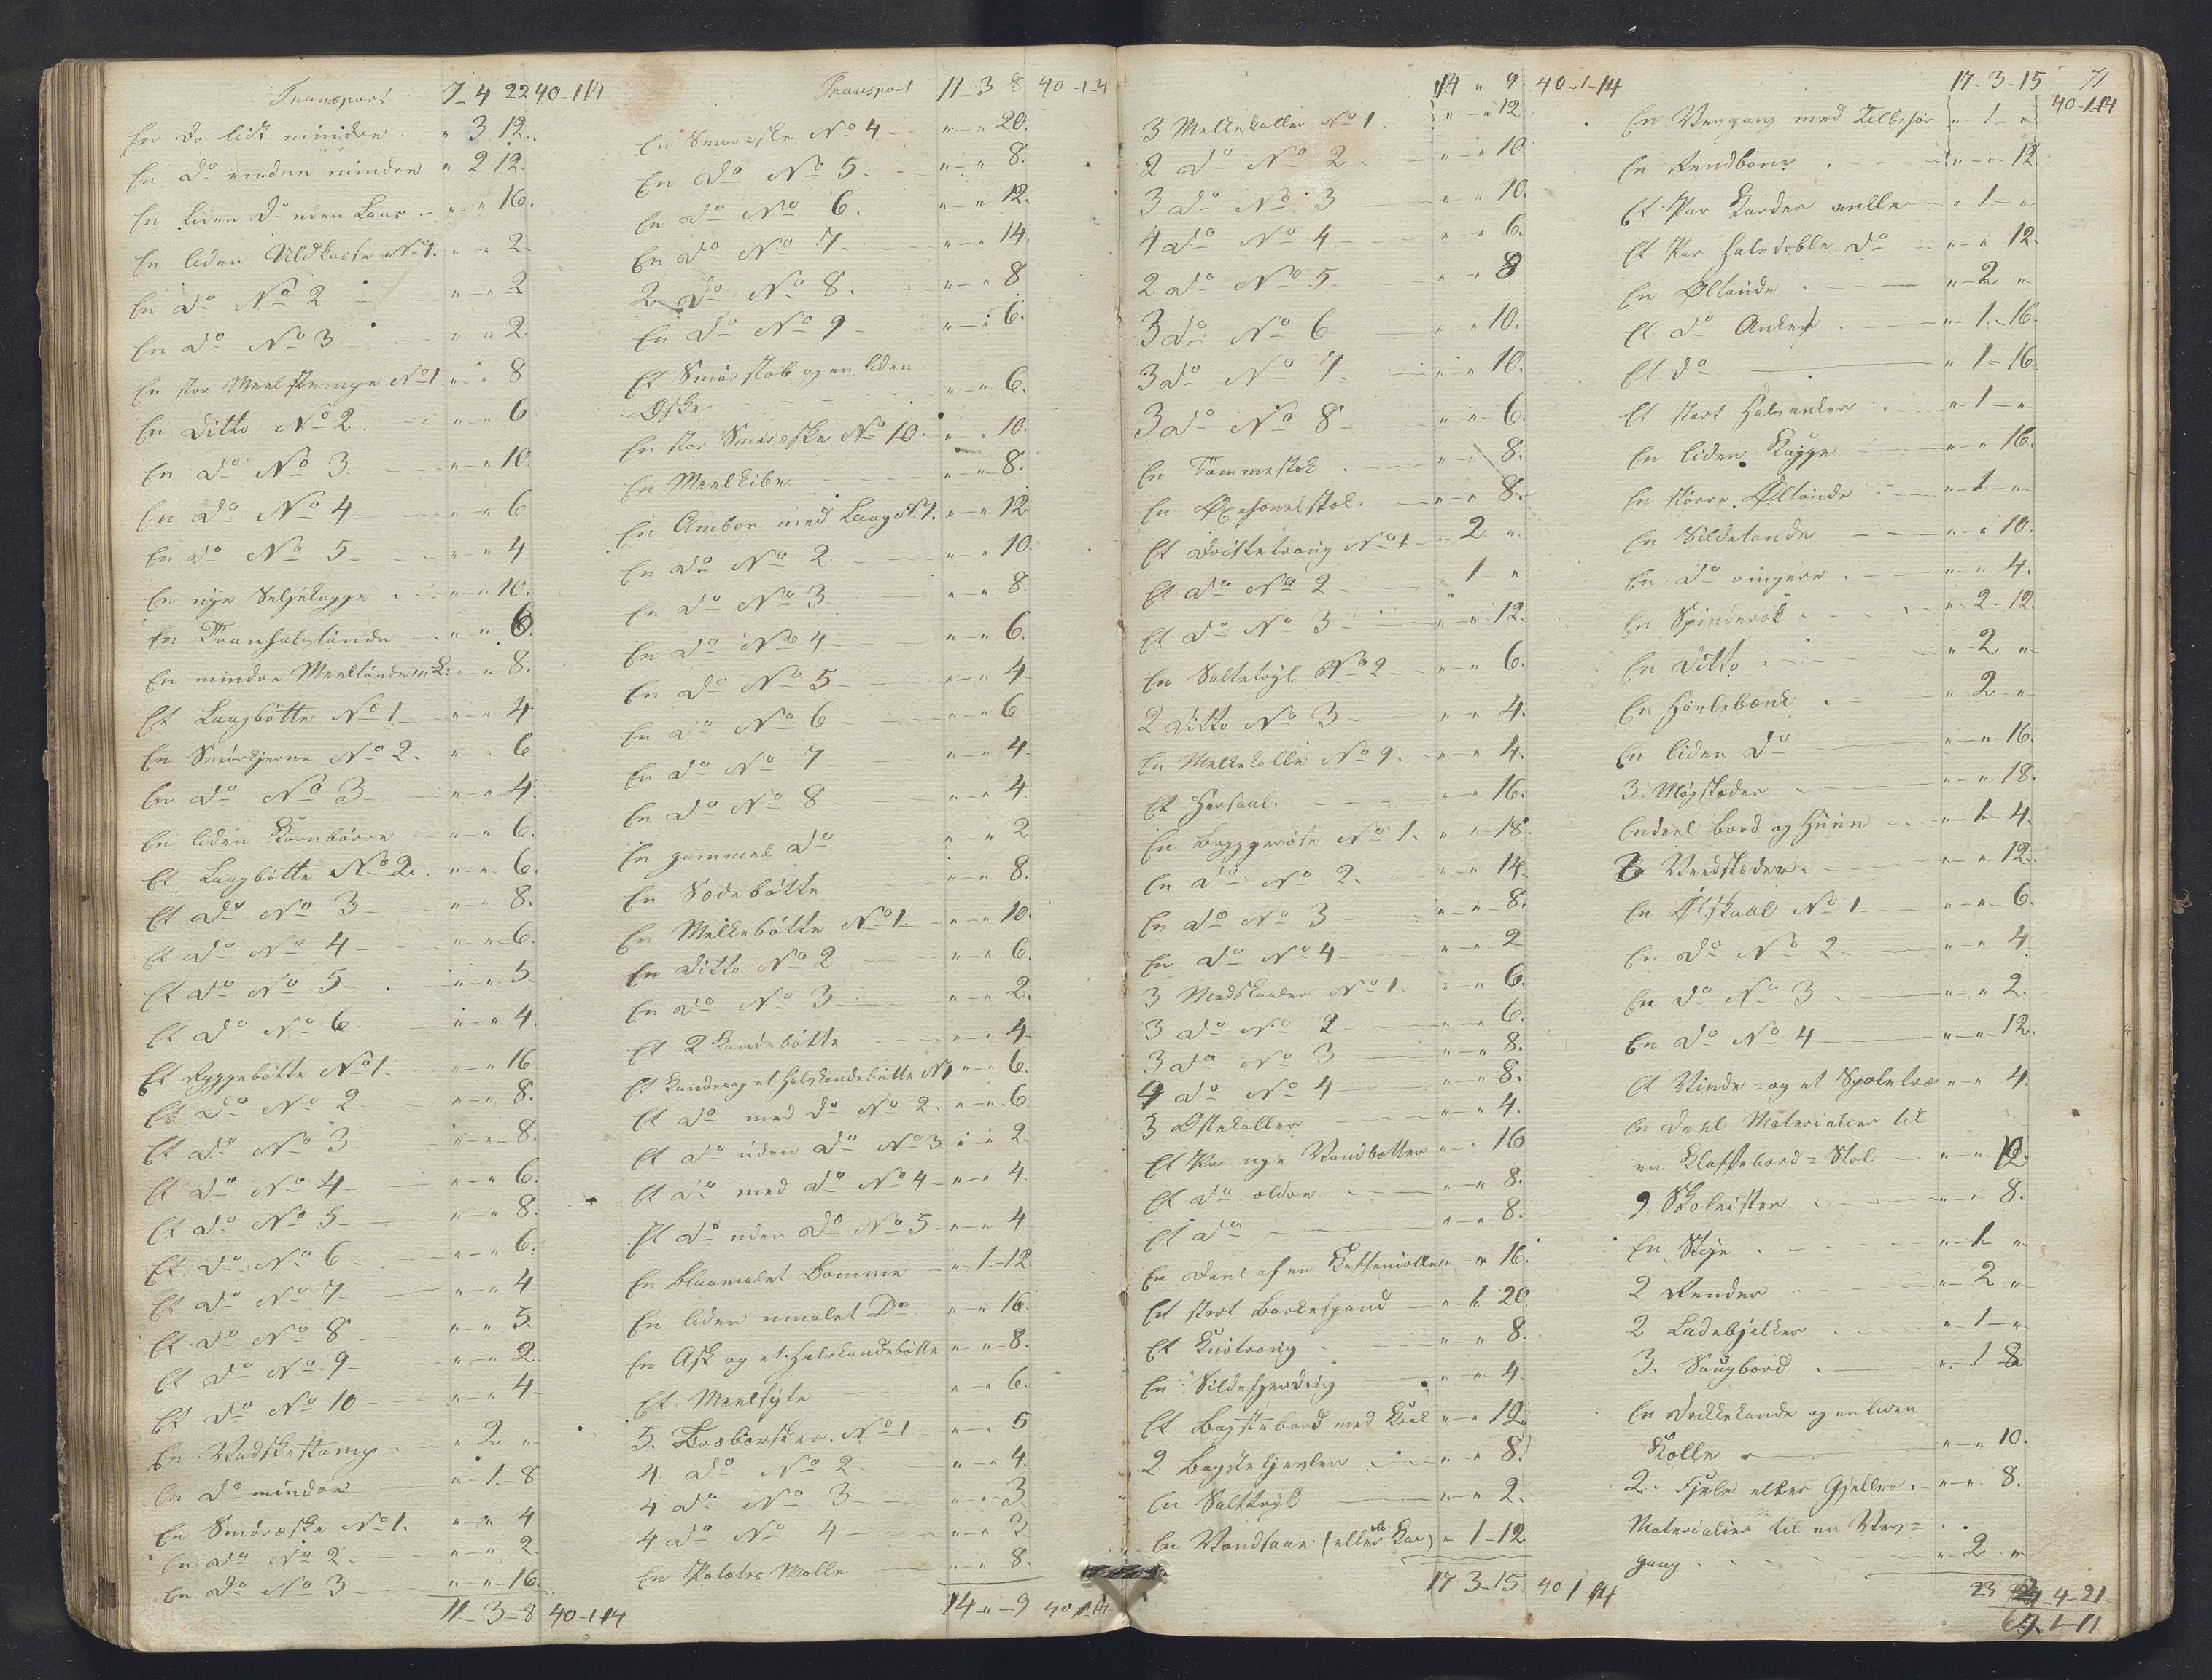 Transport 7 4 22 40-1-14
En Do lidt mindre " 3 12.
En Do enden mindre " 2 12.
En liden Do uden Laas " " 16.
En liden Uldkasse No 1. " " 2
En do No 2 " " 2
En do No 3 " " 2
En stor Meelstampe No 1 " " 8
En Ditto No 2. " " 6
En do No 3 " " 10
En do No 4 " " 6
En do No 5 " " 4
En nye Seljekagge " " 10.
En Tranhalvtønde " " 6.
En mindre Meeltønde " " 8.
Et Laagbøtte No 1 " " 4
En Smørkjerne No 2. " " 6
En do No 3 " " 4.
En liden Kornbørre " " 6.
Et Laagbøtte No 2. " " 6.
Et do No 3 " " 8.
Et do No 4 " " 6.
Et do No 5 " " 5
Et do No 6 " " 4.
Et Ryggebøtte No 1. " " 16
Et do No 2 " " 8.
Et do No 3 " " 8.
Et do No 4 " " 6.
Et do No 5 " " 8.
Et do No 6 " " 6.
Et do No 7 " " 4
Et do No 8 " " 5.
Et do No 9 " " 2
Et do No 10 " " 4
En Vadskestamp " 2 "
En do mindre " 1 8
En Smøræske No 1. " " 4
En do No 2. " " 2.
En do No 3 " " 16.
11-3-8 40-1-14
Transport 11-3 8 40-1-4
En Smøræske No 4 " " 20.
En do No 5. " " 8.
En do No 6. " " 12.
En do No 7. " " 14.
2 do No 8. " " 8
En do No 9 " " 6.
Et Smørstob og en liden
Øske " " 6.
En stor Smøræske No 10. " " 10.
En Meelkibe " " 8.
En Amber med Laag No 1. " " 12
En do No 2. " " 10.
En do No 3 " " 8.
En do No 4 " " 6.
En do No 5 " " 4
En do No 6 " " 6
En do No 7 " " 4.
En do No 8 " " 4.
En gammel do " " 2
En Sødebøtte " " 8.
En Melkebøtte No 1 " " 10.
En Ditto No 2 " " 6.
En do No 3 " " 2.
Et 2 Kandebøtte " " 4
Et Kande og et Halvkandebøtte No 1 " " 6.
Et do med do No 2. " " 6
Et do uden do No 3 " " 2.
Et do med do No 4 " " 4.
Et do uden do No 5 " " 4
En blaamalet Bomme " 1-12
En liden umalet Do " " 16.
En Ask og et Halvkandebøtte " " 8.
Et Meelsyte " " 6.
5. Træbørsker. No 1 " " 5
4 do No 2 " " 4.
4 do No 3 " " 3
4 do No 4 " " 3
En Potætes Mølle " " 8.
14-"-9 40-1-14
14 " 9 40-1-14
3 Melkekoller No 1 " " 12
2 do No 2 " " 10
3 do No 3 " " 10.
4 do No 4 " " 6
2 do No 5 " " 8
3 do No 6 " " 10.
3 do No 7. " " 10.
3 do No 8 " " 6.
En Tommestok " " 8.
En Oxehovelstok. " " 8.
Et Dristetroug No 1 " 2 "
Et do No 2 " 1 "
Et do No 3 " " 12.
En Saltetryl No 2 " " 6.
2 Ditto No 3 " " 4.
En Melkekolle No 9. " " 4.
Et Hersaal. " " 16.
En Bryggerøse No 1. " " 18.
En do No 2. " " 14
En do No 3 " " 8.
En do No 4 " " 2
3 Madskaaler No 1. " " 6.
3 do No 2 " " 6.
3 do No 3 " " 8.
4 do No 4 " " 8.
3 Ostekoller " " 4.
Et Par nye Vandbøtter " " 16
Et do ældre " " 8.
Et do " " 8.
En Deel af en Kaffemølle " " 16.
Et stort Barkespand " 1. 20
Et Knotroug " " 8.
En Sildefjerding " " 4
Et Bagstebord med Krak " " 12.
2 Bagstekjevler " " 8.
En Salttryl " " 2.
En Vandsaae (eller Kar) " 1-12
17 3-15 40 1-14
17-3-15 71
40-1-14
En Vevgang med Tilbehør " 1 "
En Rendbom " " 12.
Et Par Karder nelle " 1 "
Et Par halvdoble do " " 12.
En Øltønde " 2 "
Et do Anker " 1-16.
Et do " 1-16.
Et stort Halvanker " 1 "
En liden Kagge " " 16.
En større Øltønde " 1 "
En Sildetønde " " 10.
En do ringere " " 4.
En Spinderok " 2-12.
En Ditto " 2 "
En Høvlebænk " 2 "
En liden do " " 16.
3 Møgslæder " " 18.
Endeel bord og Huun " 1 4.
6 Vedslæder. " " 12.
En Ølskaal No 1 " " 6.
En do No 2 " " 4
En do No 3 " " 2.
En do No 4 " " 12.
Et Vinde- og et Spoletræ " " 4
En Deel Materialier til
en Klaffebord-Stol " " 12.
9 Skoleister " " 8.
En Stige " 1 "
2 Render " 2 "
2 Ladebjelker " 1 "
3. Saugbord " 1 8
En Drikkekande og en liden
Kolle " " 10.
2. Fjele eller Gjeller " " 8.
Materialier til en Vev-
gang " 2 "
23 4-21
64. 1-11